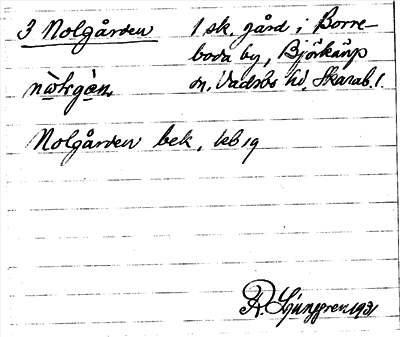 3 Nolgården 1 sk. gård i Borre-
boda by, Björkäng
sn, Vadsbo hd, Skarab. l.
Nolgården bek, leb 19
R. Ljunggren 1931